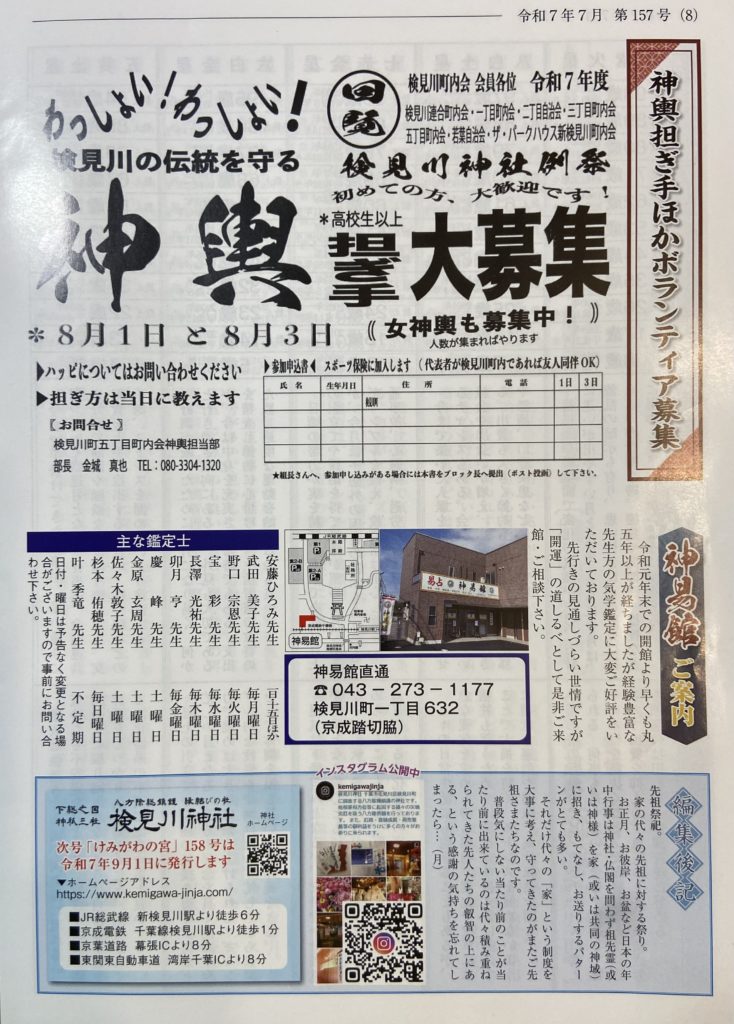 令和7年7月 第157号（8）
神輿担ぎ手ほかボランティア募集
わっしょい！わっしょい！
検見川の伝統を守る
回覧
検見川町内会 会員各位 令和7年度
検見川連合町内会・一丁目町内会・二丁目自治会・三丁目町内会
五丁目町内会・若葉自治会・ザ・パークハウス新検見川町内会
検見川神社例祭
初めての方、大歓迎です！
神輿
＊高校生以上
担ぎ手
大募集
＊8月1日 と 8月3日
《 女神輿も募集中！ 》
人数が集まればやります
▶ハッピについてはお問い合わせください
▶担ぎ方は当日に教えます
〖お問合せ〗
検見川町五丁目町内会神輿担当部
部長 金城 真也 TEL：080-3304-1320
▶参加申込書◀ スポーツ保険に加入します （代表者が検見川町内であれば友人同伴OK）
氏 名 生年月日 住 所 電 話 1日 3日
★組長さんへ、参加申し込みがある場合には本書をブロック長へ提出（ポスト投函）して下さい。
神易館ご案内
令和元年末での開館より早くも丸
五年以上が経ちましたが経験豊富な
先生方の気学鑑定に大変ご好評をい
ただいております。
先行きの見通しづらい世情ですが
「開運」の道しるべとして是非ご来
館・ご相談下さい。
易占 神易館
神易館
神易館直通
☎043－273－1177
検見川町一丁目632
（京成踏切脇）
主な鑑定士
安藤ひろみ先生 一日・十五日ほか
武田 美子先生 毎月曜日
野口 宗恩先生 毎火曜日
宝 彩 先生 毎水曜日
長澤 光祐先生 毎木曜日
卯月 亨 先生 毎金曜日
慶 峰 先生 土曜日
金原 玄周先生 土曜日
佐々木敦子先生 土曜日
杉本 侑穂先生 毎日曜日
叶 季竜 先生 不定期
日付・曜日は予告なく変更となる場
合がございますので事前にお問い合
わせ下さい。
編集後記
先祖祭祀。
家の代々の先祖に対する祭り。
お正月、お彼岸、お盆など日本の年
中行事は神社・仏閣を問わず祖先霊（或
いは神様）を家（或いは共同の神域）
に招き、もてなし、お送りするパター
ンがとても多い。
それだけ代々の「家」という制度を
大事に考え、守ってきたのがまたご先
祖さまたちなのです。
普段気にしない当たり前のことが当
たり前に出来ているのは代々積み重ね
られてきた先人たちの叡智の上にあ
る、という感謝の気持ちを忘れてし
まったら…（月）
インスタグラム公開中
kemigawajinja
下総之国
神祇三社
八方除総鎮護 縁結びの杜
検見川神社
神社
ホームページ
次号「けみがわの宮」158号は
令和7年9月1日に発行します
▼ホームページアドレス
https://www.kemigawa-jinja.com/
■JR総武線 新検見川駅より徒歩6分
■京成電鉄 千葉線検見川駅より徒歩1分
■京葉道路 幕張ICより8分
■東関東自動車道 湾岸千葉ICより8分